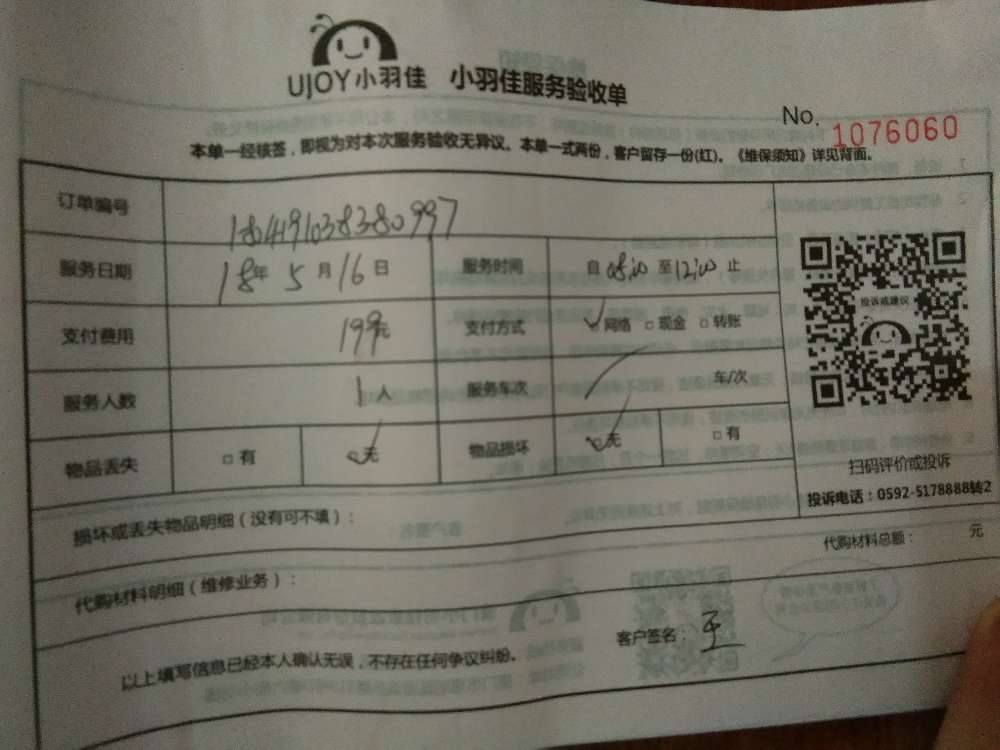 UJOY小羽佳 小羽佳服务验收单
No. 1076060
本单一经核签，即视为对本次服务验收无异议。本单一式两份，客户留存一份(红)。《维保须知》详见背面。
订单编号 1804191038380997
服务日期 18年 5月16日 服务时间 自 08:00 至 12:00 止
支付费用 199元 支付方式 ☑网络 □现金 □转账
服务人数 1人 服务车次 / 车/次
物品丢失 □有 ☑无 物品损坏 ☑无 □有
投诉或建议
扫码评价或投诉
投诉电话：0592-5178888转2
损坏或丢失物品明细（没有可不填）：
代购材料明细（维修业务）： 代购材料总额： 元
以上填写信息已经本人确认无误，不存在任何争议纠纷。 客户签名：王